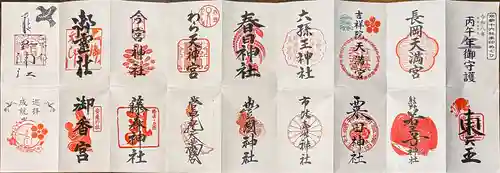 丙午年御守護
長岡天満宮
吉祥院
天満宮
六孫王神社
春日神社
わら天神宮
今宮神社
御霊社
東天王
若王子神社
粟田神社
市比賣神社
豊国神社
藤森神社
御香宮
巡拝
成就